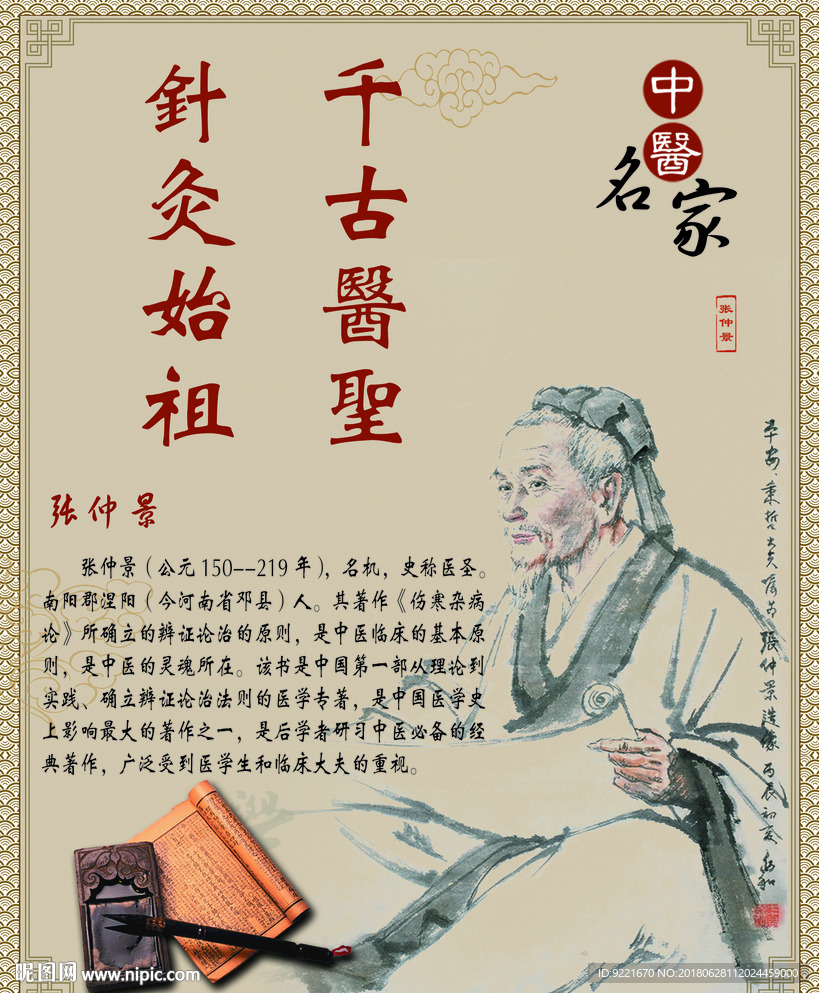 中醫
名家
千古醫聖
針灸始祖
张仲景
张仲景
张仲景（公元150--219年），名机，史称医圣。
南阳郡涅阳（今河南省邓县）人。其著作《伤寒杂病
论》所确立的辨证论治的原则，是中医临床的基本原
则，是中医的灵魂所在。该书是中国第一部从理论到
实践、确立辨证论治法则的医学专著，是中国医学史
上影响最大的著作之一，是后学者研习中医必备的经
典著作，广泛受到医学生和临床大夫的重视。
張仲景造像 丙辰初夏
昵图网 www.nipic.com
ID:9221670 NO:20180628112024459000